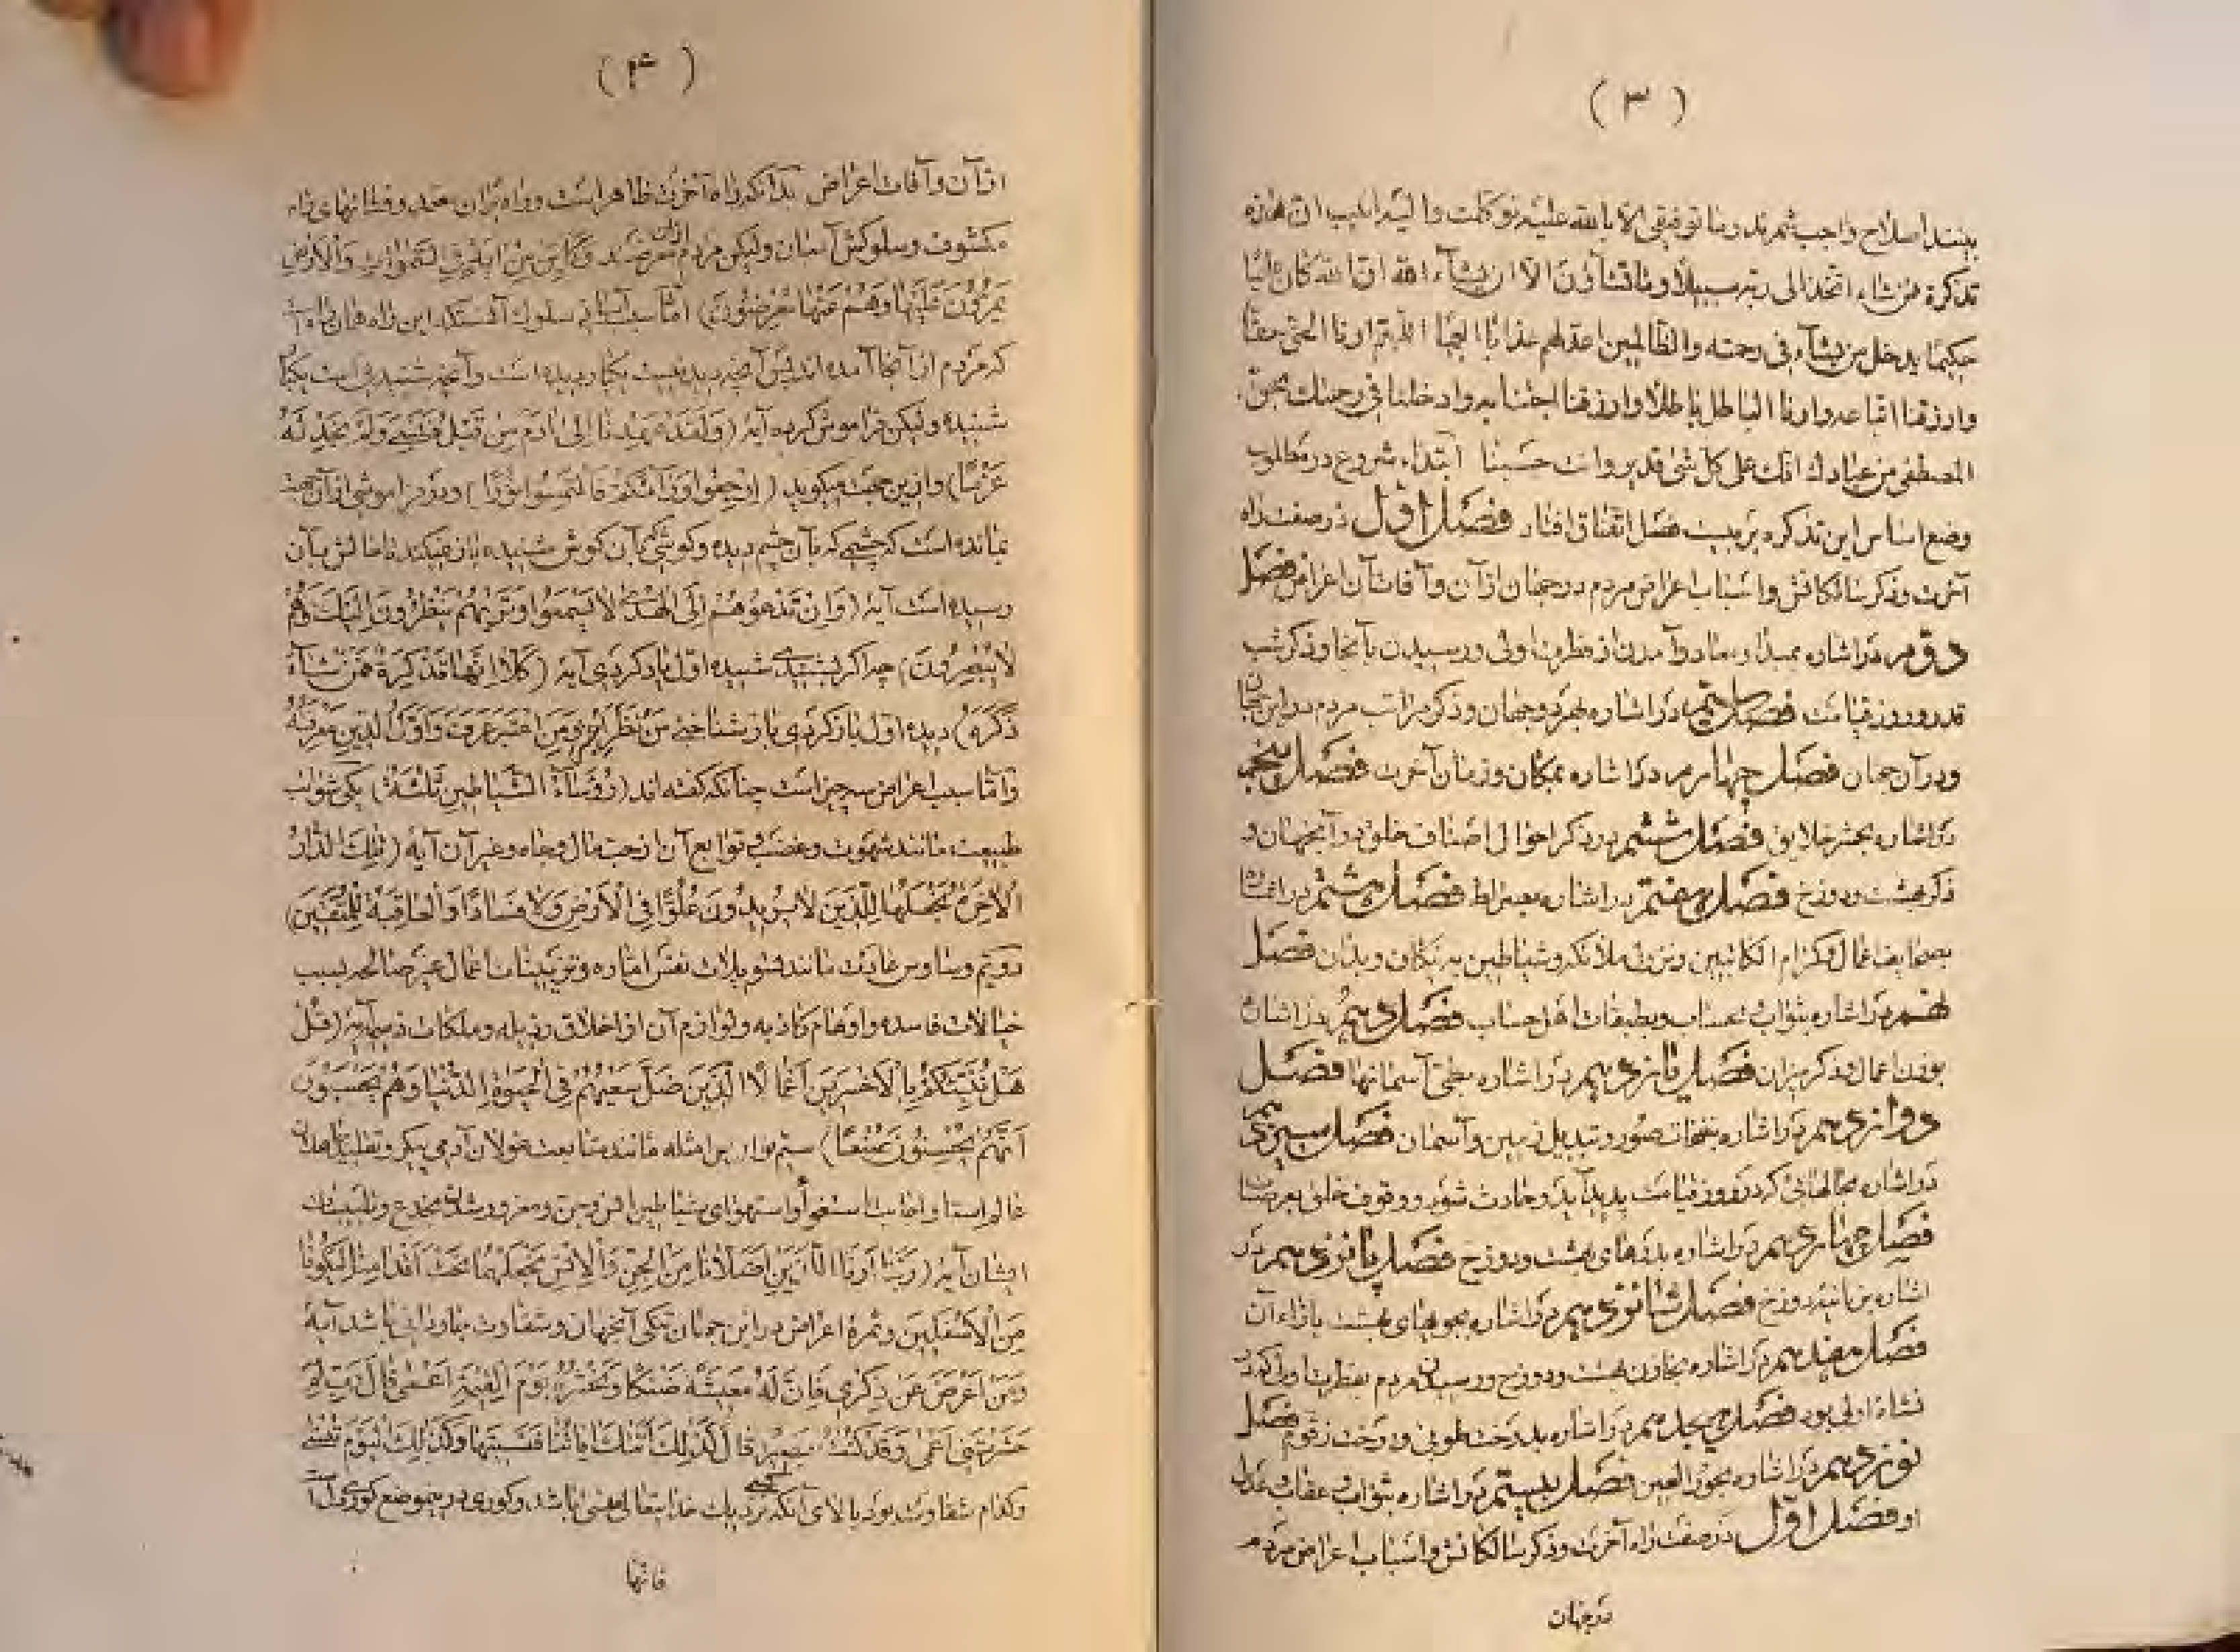 ( ۳ )
بینند اصلاح واجب شمرند وما توفیقی الا بالله علیه توکلت والیه انیب ان هذه
تذکرة فمن شاء اتخذ الی ربه سبیلا وما تشاؤن الا ان یشآء الله ان الله کان علیما
حکیما یدخل من یشآء فی رحمته والظالمین اعد لهم عذابا الیما اللهم ارنا الحق حقا
وارزقنا اتباعه وارنا الباطل باطلا وارزقنا اجتنابه وادخلنا فی رحمتک بحق
المصطفی من عبادک انک علی کل شئ قدیر وانت حسبنا ابتداء شروع در مطلوب
وضع اساس این تذکره بر بیست فصل اتفاق افتاد فصل اول در صفت راه
آخرت وذکر سالکانش واسباب اعراض مردم در جهان از آن وآفات آن اعراض فصل
دوم در اشاره بمبدا ومعاد وآمدن از فطرت اولی ورسیدن بآنجا وذکر شب
قدر وروز قیامت فصل سیم در اشاره بهر دو جهان وذکر مراتب مردم در این جهان
ودر آن جهان فصل چهارم در اشاره بمکان وزمان آخرت فصل پنجم
در اشاره بحشر خلایق فصل ششم در ذکر احوال اصناف خلق در آنجهان و
ذکر بهشت ودوزخ فصل هفتم در اشاره بصراط فصل هشتم در اشاره
بصحایف اعمال وکرام الکاتبین ونزول ملائکه وشیاطین بر نیکان وبدان فصل
نهم در اشاره بثواب حساب وطبقات اهل حساب فصل دهم در اشاره
بوزن اعمال وذکر میزان فصل یازدهم در اشاره بطی آسمانها فصل
دوازدهم در اشاره بنفخات صور وتبدیل زمین وآسمان فصل سیزدهم
در اشاره بحالهائی که در روز قیامت پدید آید وحادث شود ووقوف خلق بعرصات
فصل چهاردهم در اشاره بدرهای بهشت ودوزخ فصل پانزدهم در
اشاره بزبانیه دوزخ فصل شانزدهم در اشاره بجویهای بهشت بازاء آن
فصل هفدهم در اشاره بخازن بهشت ودوزخ ورسیدن مردم بفطرت اولی که در
نشاة اولی بود فصل هیجدهم در اشاره بدرخت طوبی ودرخت زقوم فصل
نوزدهم در اشاره بحور العین فصل بیستم در اشاره بثواب وعقاب وعدل
او فصل اول در صفت راه آخرت وذکر سالکانش واسباب اعراض مردم
در جهان
( ۴ )
از آن وآفات اعراض بدانکه راه آخرت ظاهر است وراه بران معتمد ونشانهای راه
مکشوف وسلوکش آسان ولیکن مردم از آن معرضند وَکَاَیِّنْ مِنْ ایَةٍ فِی السَّمٰوَاتِ وَالْاَرْضِ
یَمُرُّونَ عَلَیْهَا وَهُمْ عَنْهَا مُعْرِضُونَ) اما سبب آسانی سلوک آنست که این راه همان راه است
که مردم از آنجا آمده اند پس آنچه دیدنیست یکبار دیده است وآنچه شنیدنی است یکبار
شنیده ولیکن فراموش کرده آیه (وَلَقَدْ عَهِدْنَا اِلٰی اٰدَمَ مِنْ قَبْلُ فَنَسِیَ وَلَمْ نَجِدْ لَهُ
عَزْمًا) وازین جهت میگوید (اِرْجِعُوا وَرَآءَکُمْ فَالْتَمِسُوا نُورًا) ودر فراموشی از آن جهت
بمانده است که چشمی که بآن چشم دیده وگوشی که بآن گوش شنیده باز نمیکند تا حالش بآن
رسیده است آیه (وَاِنْ تَدْعُوهُمْ اِلَی الْهُدٰی لَا یَسْمَعُوا وَتَرٰیهُمْ یَنْظُرُونَ اِلَیْکَ وَهُمْ
لَا یُبْصِرُونَ) چه اگر بشنیدی شنیده اول یاد کردی آیه (کَلَّا اِنَّهَا تَذْکِرَةٌ فَمَنْ شَآءَ
ذَکَرَهُ) دیده اول باز کردی باز شناختی مَنْ نَظَرَ اعْتَبَرَ وَمَنِ اعْتَبَرَ عَرَفَ وَاَوَّلُ الدِّینِ مَعْرِفَتُهُ
واما سبب اعراض سه چیز است چنانکه گفته اند (رُؤَسَآءُ الشَّیَاطِینِ ثَلٰثَةٌ) یکی شوائب
طبیعت مانند شهوت وغضب وتوابع آن از حب مال وجاه وغیر آن آیه (تِلْکَ الدَّارُ
الْاٰخِرَةُ نَجْعَلُهَا لِلَّذِینَ لَا یُرِیدُونَ عُلُوًّا فِی الْاَرْضِ وَلَا فَسَادًا وَالْعَاقِبَةُ لِلْمُتَّقِینَ)
دویم وساوس عادت مانند تسویلات نفس اماره وتزیینات اعمال غیر صالحه بسبب
خیالات فاسده واوهام کاذبه ولوازم آن از اخلاق رذیله وملکات ذمیمه آیه (قُلْ
هَلْ نُنَبِّئُکُمْ بِالْاَخْسَرِینَ اَعْمَالًا الَّذِینَ ضَلَّ سَعْیُهُمْ فِی الْحَیٰوةِ الدُّنْیَا وَهُمْ یَحْسَبُونَ
اَنَّهُمْ یُحْسِنُونَ صُنْعًا) سیم نوامیس امثله مانند متابعت غولان آدمی پیکر وتقلید جاهلان
عالم آسا واجابت استغوا واستهوای شیاطین انس وجن ومغرور شدن بخدع وتلبیسات
ایشان آیه (رَبَّنَا اَرِنَا الَّذَیْنِ اَضَلَّانَا مِنَ الْجِنِّ وَالْاِنْسِ نَجْعَلْهُمَا تَحْتَ اَقْدَامِنَا لِیَکُونَا
مِنَ الْاَسْفَلِینَ وثمرۀ اعراض در این جهان تنگی آنجهان وشقاوت جاودانی باشد آیه
وَمَنْ اَعْرَضَ عَنْ ذِکْرِی فَاِنَّ لَهُ مَعِیشَةً ضَنْکًا وَنَحْشُرُهُ یَوْمَ الْقِیٰمَةِ اَعْمٰی قَالَ رَبِّ لِمَ
حَشَرْتَنِی اَعْمٰی وَقَدْ کُنْتُ بَصِیرًا قَالَ کَذٰلِکَ اَتَتْکَ اٰیَاتُنَا فَنَسِیتَهَا وَکَذٰلِکَ الْیَوْمَ تُنْسٰی
وکدام شقاوت بود بالای آنکه نزدیک خدایتعالی منسی باشد وکوری در این موضع کوری دل است
فانها